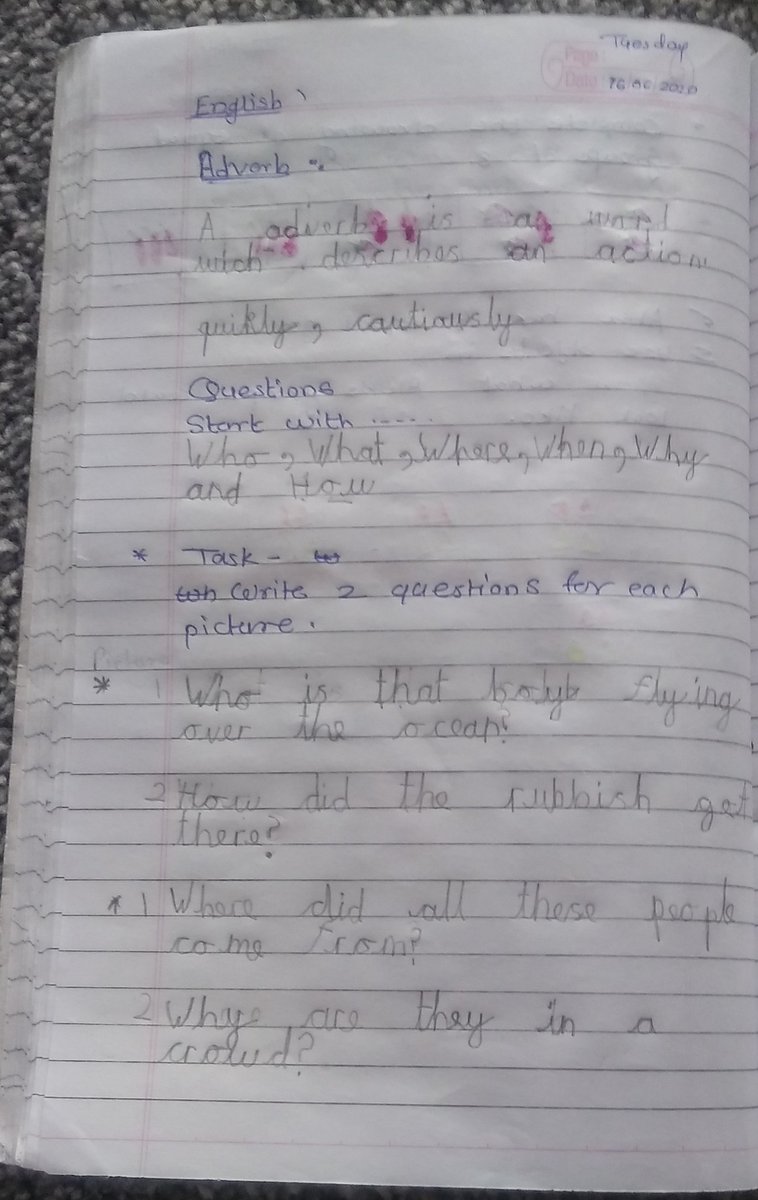 Tuesday
Page
Date 16/06/2020
English
Adverb :-
A adverb is a word
wich describes an action
quikly, cautiously
Questions
Start with .....
Who, What, Where, When, Why
and How
* Task -
Write 2 questions for each
picture.
* 1 Who is that flying
over the ocean?
2 How did the rubbish get
there?
* 1 Where did all these people
come from?
2 Why are they in a
crowd?